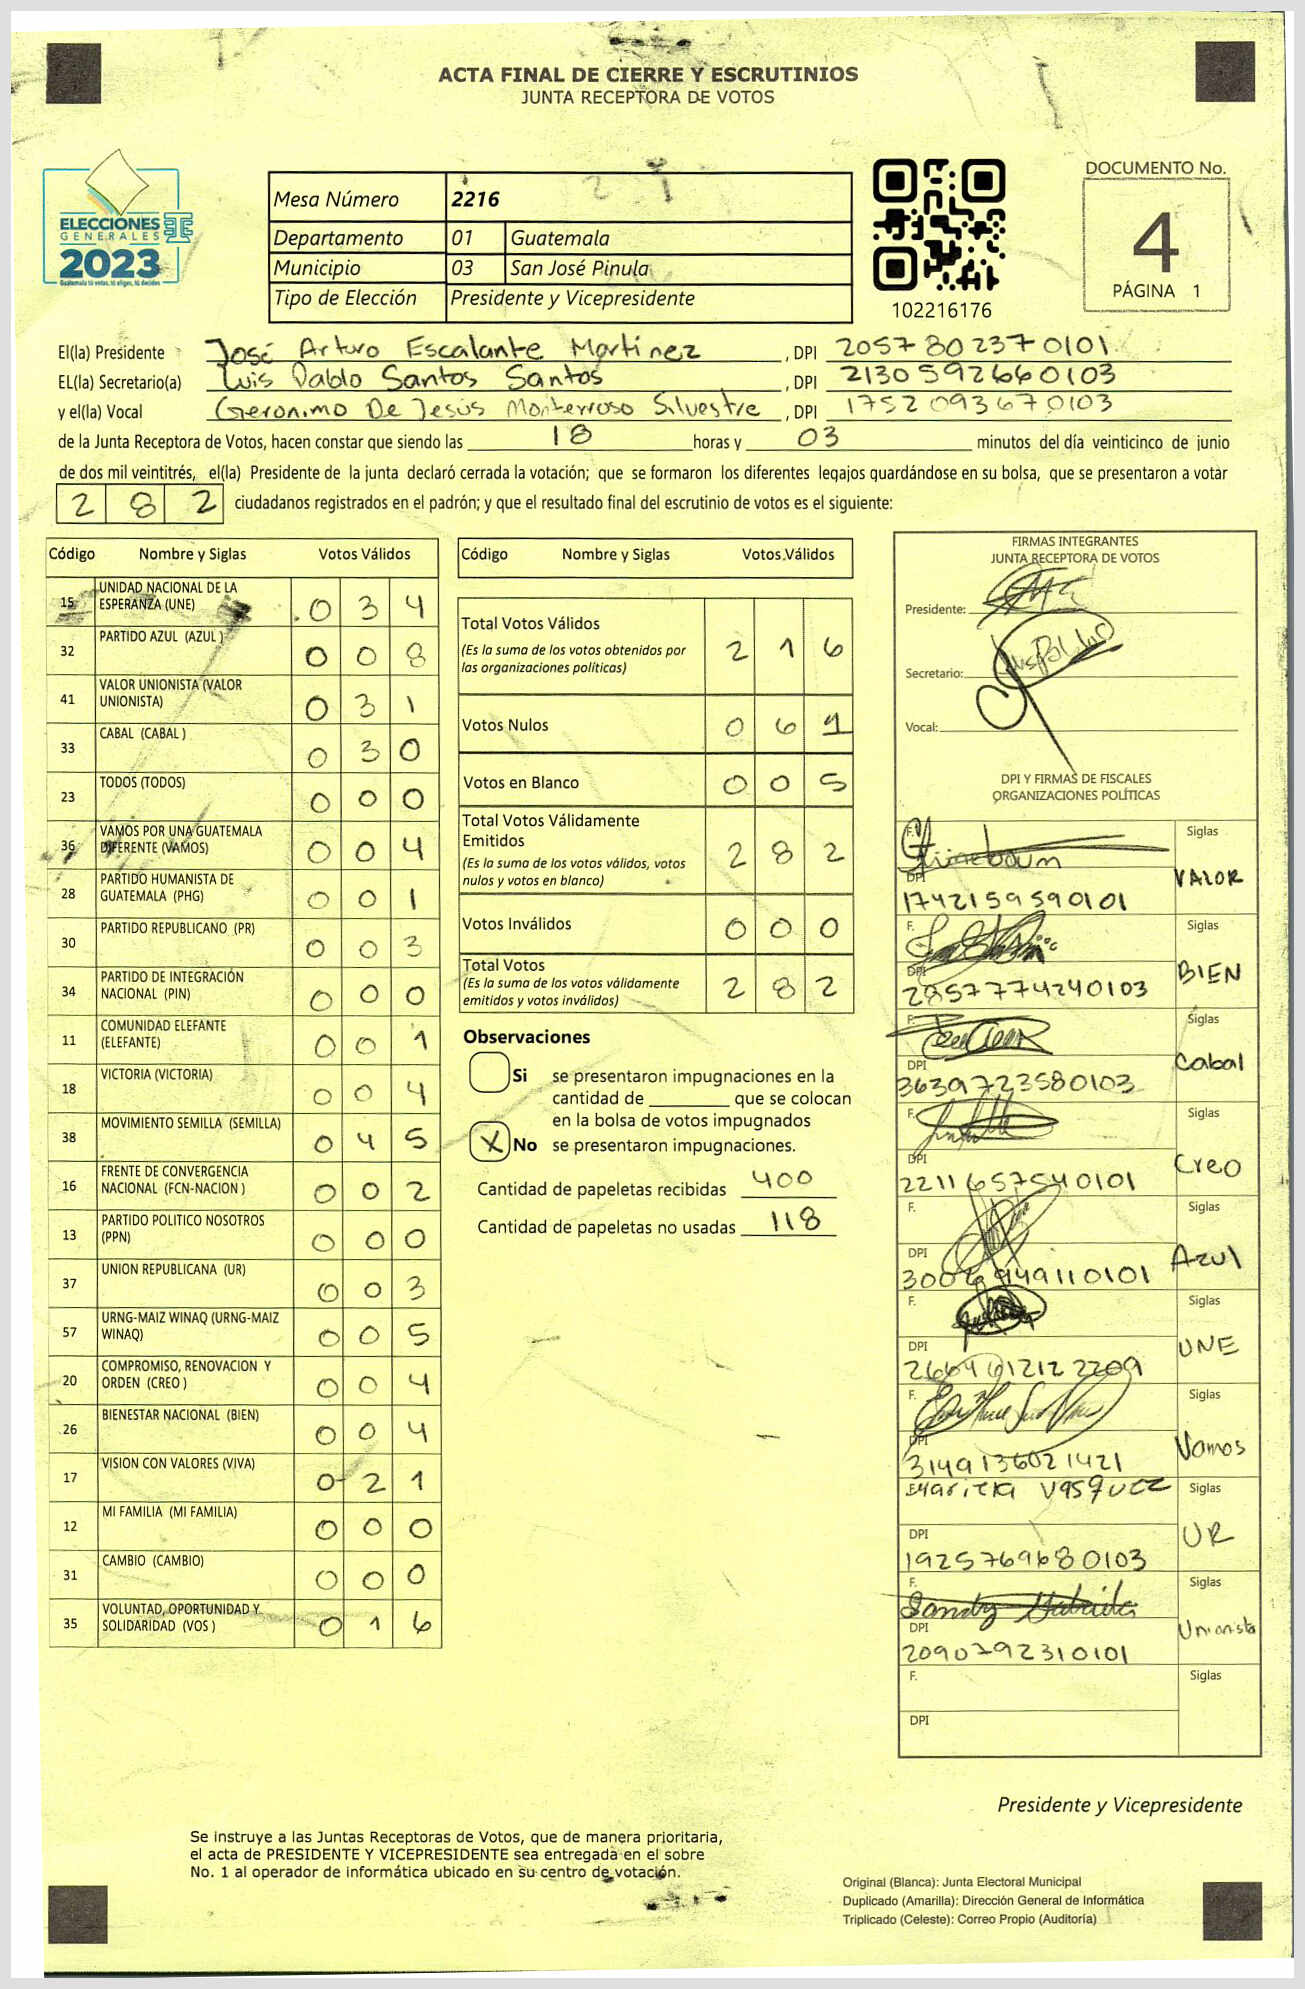 ACTA FINAL DE CIERRE Y ESCRUTINIOS
JUNTA RECEPTORA DE VOTOS
ELECCIONES
GENERALES
2023
Guatemala tú votas, tú eliges, tú decides
Mesa Número 2216
Departamento 01 Guatemala
Municipio 03 San José Pinula
Tipo de Elección Presidente y Vicepresidente
102216176
DOCUMENTO No.
4
PÁGINA 1
El(la) Presidente José Arturo Escalante Martínez, DPI 2057802370101
EL(la) Secretario(a) Luis Pablo Santos Santos, DPI 2130592660103
y el(la) Vocal Gerónimo De Jesús Monterroso Silvestre, DPI 1752093670103
de la Junta Receptora de Votos, hacen constar que siendo las 18 horas y 03 minutos del día veinticinco de junio
de dos mil veintitrés, el(la) Presidente de la junta declaró cerrada la votación; que se formaron los diferentes legajos quardándose en su bolsa, que se presentaron a votar
282 ciudadanos registrados en el padrón; y que el resultado final del escrutinio de votos es el siguiente:
Código Nombre y Siglas Votos Válidos
15 UNIDAD NACIONAL DE LA ESPERANZA (UNE) 034
32 PARTIDO AZUL (AZUL) 008
41 VALOR UNIONISTA (VALOR UNIONISTA) 031
33 CABAL (CABAL ) 030
23 TODOS (TODOS) 000
36 VAMOS POR UNA GUATEMALA DIFERENTE (VAMOS) 004
28 PARTIDO HUMANISTA DE GUATEMALA (PHG) 001
30 PARTIDO REPUBLICANO (PR) 003
34 PARTIDO DE INTEGRACIÓN NACIONAL (PIN) 000
11 COMUNIDAD ELEFANTE (ELEFANTE) 001
18 VICTORIA (VICTORIA) 004
38 MOVIMIENTO SEMILLA (SEMILLA) 045
16 FRENTE DE CONVERGENCIA NACIONAL (FCN-NACION ) 002
13 PARTIDO POLITICO NOSOTROS (PPN) 000
37 UNION REPUBLICANA (UR) 003
57 URNG-MAIZ WINAQ (URNG-MAIZ WINAQ) 005
20 COMPROMISO, RENOVACION Y ORDEN (CREO ) 004
26 BIENESTAR NACIONAL (BIEN) 004
17 VISION CON VALORES (VIVA) 021
12 MI FAMILIA (MI FAMILIA) 000
31 CAMBIO (CAMBIO) 000
35 VOLUNTAD, OPORTUNIDAD Y SOLIDARIDAD (VOS ) 016
Código Nombre y Siglas Votos Válidos
Total Votos Válidos 216
(Es la suma de los votos obtenidos por
las organizaciones políticas)
Votos Nulos 061
Votos en Blanco 005
Total Votos Válidamente
Emitidos 282
(Es la suma de los votos válidos, votos
nulos y votos en blanco)
Votos Inválidos 000
Total Votos 282
(Es la suma de los votos válidamente
emitidos y votos inválidos)
Observaciones
Si se presentaron impugnaciones en la
cantidad de ________ que se colocan
en la bolsa de votos impugnados
X No se presentaron impugnaciones.
Cantidad de papeletas recibidas 400
Cantidad de papeletas no usadas 118
FIRMAS INTEGRANTES
JUNTA RECEPTORA DE VOTOS
Presidente:
Secretario:
Vocal:
DPI Y FIRMAS DE FISCALES
ORGANIZACIONES POLÍTICAS
F. Siglas
DPI VALOR
1742159590101
F. Siglas
DPI BIEN
2857774240103
F. Siglas
DPI Cabal
3639723580103
F. Siglas
DPI Creo
2211657540101
F. Siglas
DPI Azul
F. Siglas
DPI UNE
F. Siglas
DPI Vamos
3149136021421
F. Siglas
DPI UR
1925769680103
F. Sandy Siglas
DPI Unionista
2090792310101
F. Siglas
DPI
Presidente y Vicepresidente
Se instruye a las Juntas Receptoras de Votos, que de manera prioritaria,
el acta de PRESIDENTE Y VICEPRESIDENTE sea entregada en el sobre
No. 1 al operador de informática ubicado en su centro de votación.
Original (Blanca): Junta Electoral Municipal
Duplicado (Amarilla): Dirección General de Informática
Triplicado (Celeste): Correo Propio (Auditoría)